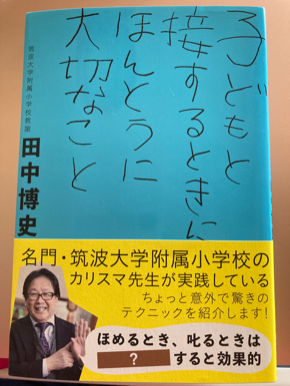 子どもと
接するときに
ほんとうに
大切なこと
筑波大学附属小学校教諭
田中博史
名門・筑波大学附属小学校の
カリスマ先生が実践している
ちょっと意外で驚きの
テクニックを紹介します!
ほめるとき、叱るときは
?すると効果的